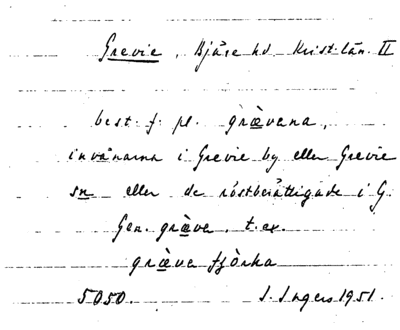 Grevie, Bjäre hd Krist. län. II
best. f. pl. grævana,
invånarna i Grevie by eller Grevie
sn eller de röstberättigade i G.
Gen. græva, t.ex.
græva fjórka
5050. I. Ingers 1951.